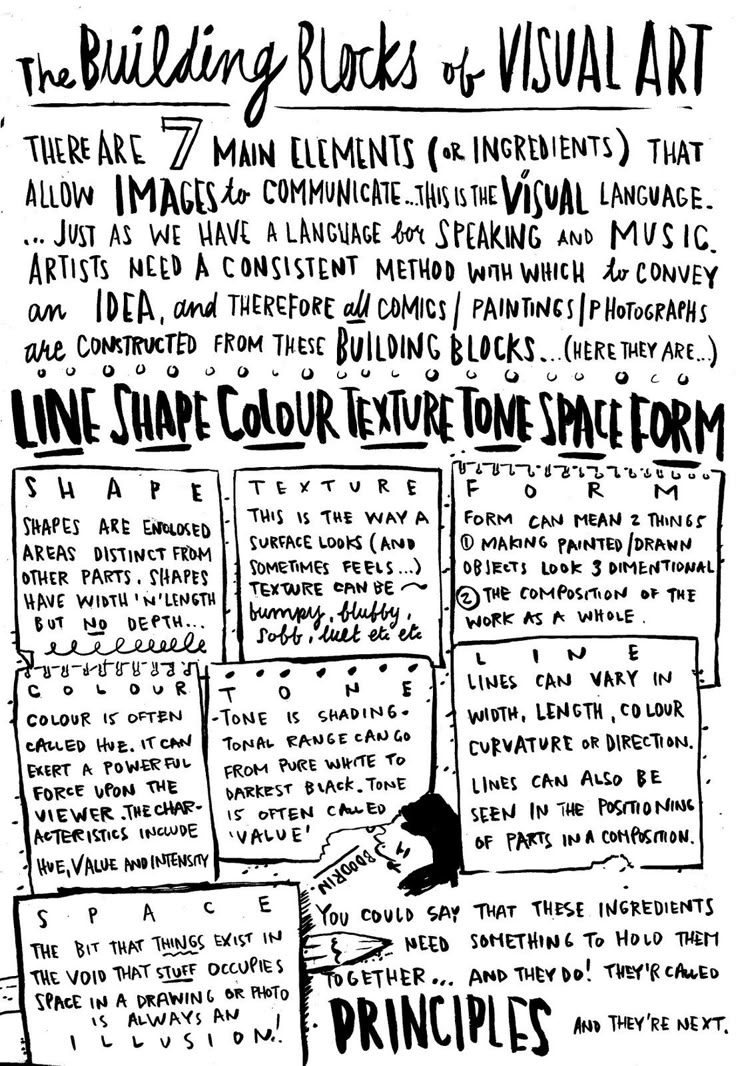 The Building Blocks of VISUAL ART
THERE ARE 7 MAIN ELEMENTS (OR INGREDIENTS) THAT
ALLOW IMAGES to COMMUNICATE...THIS IS THE VISUAL LANGUAGE.
... JUST AS WE HAVE A LANGUAGE for SPEAKING AND MUSIC.
ARTISTS NEED A CONSISTENT METHOD WITH WHICH to CONVEY
an IDEA, and THEREFORE all COMICS/PAINTINGS/PHOTOGRAPHS
are CONSTRUCTED FROM THESE BUILDING BLOCKS...(HERE THEY ARE...)
LINE SHAPE COLOUR TEXTURE TONE SPACE FORM
SHAPE
SHAPES ARE ENCLOSED
AREAS DISTINCT FROM
OTHER PARTS. SHAPES
HAVE WIDTH 'N' LENGTH
BUT NO DEPTH...
TEXTURE
THIS IS THE WAY A
SURFACE LOOKS (AND
SOMETIMES FEELS...)
TEXTURE CAN BE ~
bumpy, blubby,
sobb, wet etc etc
FORM
FORM CAN MEAN 2 THINGS
① MAKING PAINTED/DRAWN
OBJECTS LOOK 3 DIMENTIONAL
② THE COMPOSITION OF THE
WORK AS A WHOLE.
COLOUR
COLOUR IS OFTEN
CALLED HUE. IT CAN
EXERT A POWERFUL
FORCE UPON THE
VIEWER. THE CHAR-
ACTERISTICS INCLUDE
HUE, VALUE AND INTENSITY
TONE
-TONE IS SHADING-
TONAL RANGE CAN GO
FROM PURE WHITE TO
DARKEST BLACK. TONE
IS OFTEN CALLED
'VALUE'
LINE
LINES CAN VARY IN
WIDTH, LENGTH, COLOUR
CURVATURE OR DIRECTION.
LINES CAN ALSO BE
SEEN IN THE POSITIONING
OF PARTS IN A COMPOSITION.
SPACE
THE BIT THAT THINGS EXIST IN
THE VOID THAT STUFF OCCUPIES
SPACE IN A DRAWING OR PHOTO
IS ALWAYS AN
ILLUSION!
BOOORIN
YOU COULD SAY THAT THESE INGREDIENTS
NEED SOMETHING TO HOLD THEM
TOGETHER... AND THEY DO! THEY'R CALLED
PRINCIPLES AND THEY'RE NEXT.